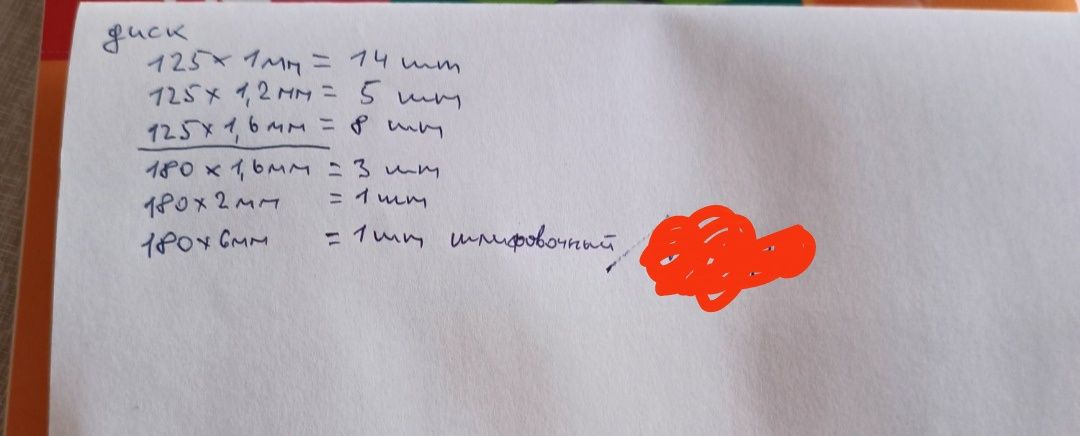 диск
125 x 1мм = 14 шт
125 x 1,2мм = 5 шт
125 x 1,6мм = 8 шт
180 x 1,6мм = 3 шт
180 x 2мм = 1 шт
180 x 6мм = 1 шт шлифовочный